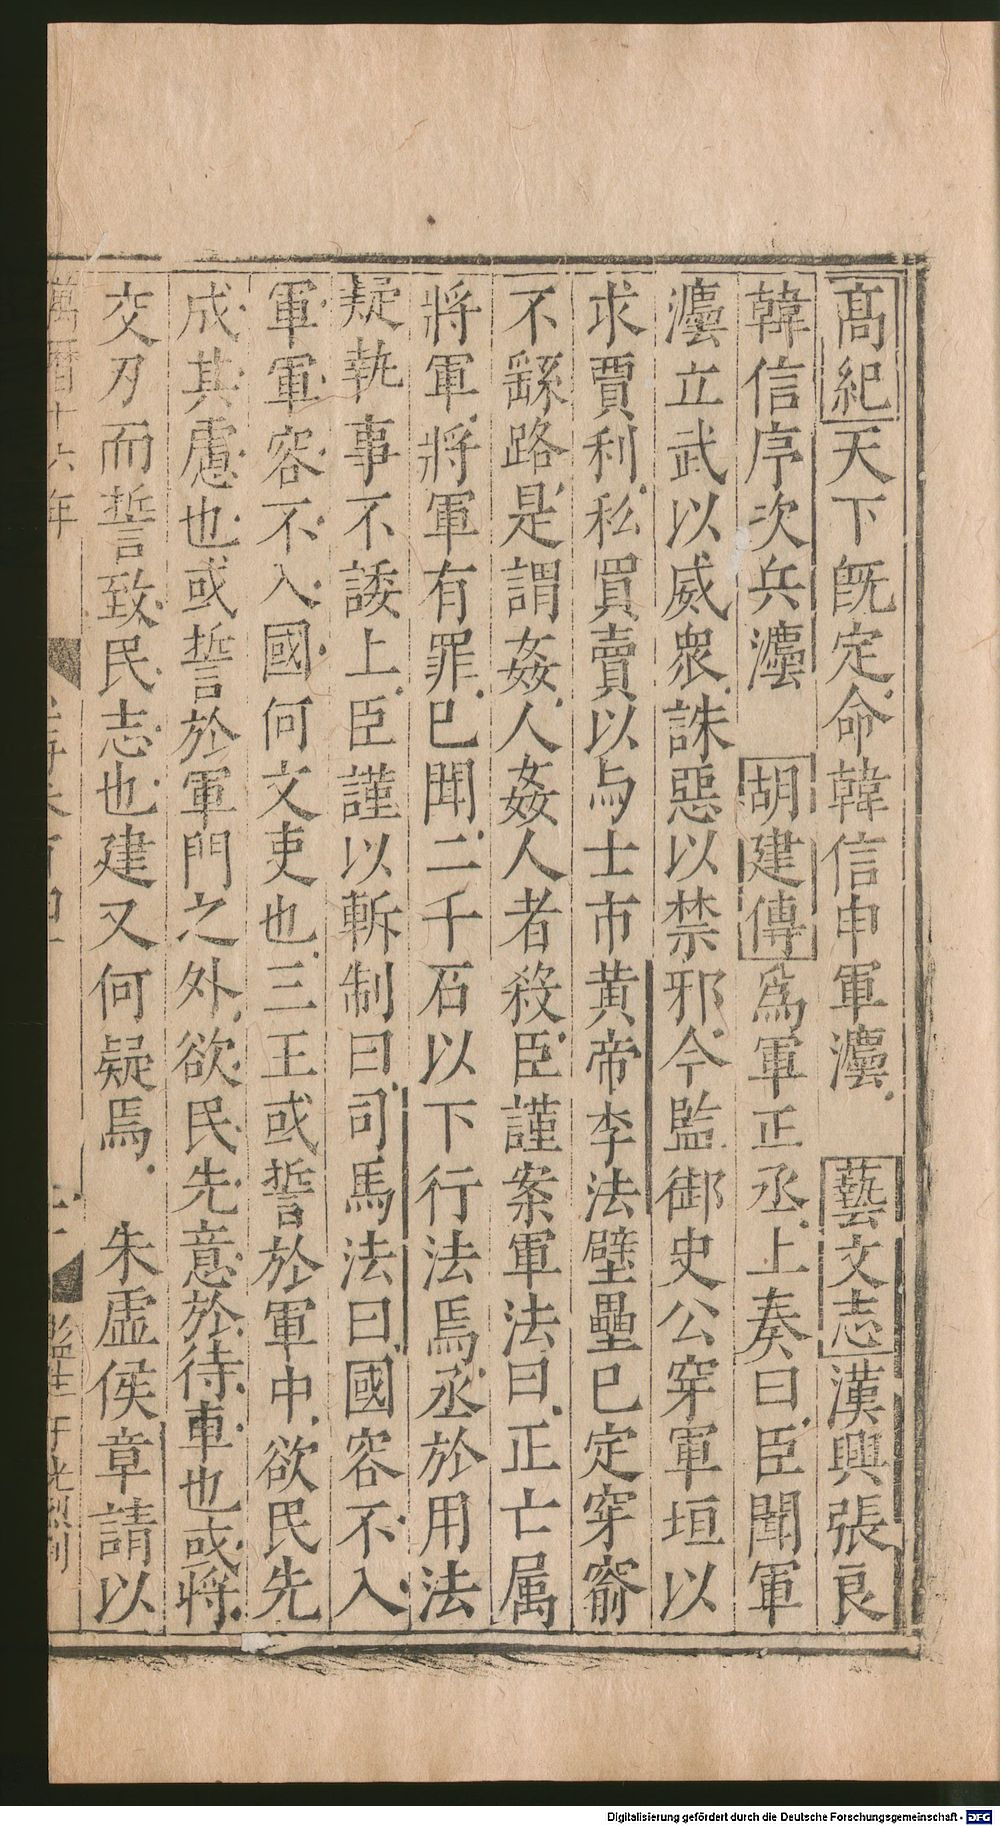 高紀天下旣定命韓信申軍灋　藝文志漢興張良
韓信序次兵灋　胡建傳爲軍正丞上奏曰臣聞軍
灋立武以威衆誅惡以禁邪今監御史公穿軍垣以
求賈利私買賣以与士市黄帝李法壁壘已定穿窬
不繇路是謂姦人姦人者殺臣謹案軍法曰正亡属
將軍將軍有罪已聞二千石以下行法焉丞於用法
疑執事不諉上臣謹以斬制曰司馬法曰國容不入
軍軍容不入國何文吏也三王或誓於軍中欲民先
成其慮也或誓於軍門之外欲民先意於待車也或將
交刃而誓致民志也建又何疑焉　朱虛侯章請以
萬曆十六年
監生
Digitalisierung gefördert durch die Deutsche Forschungsgemeinschaft - DFG